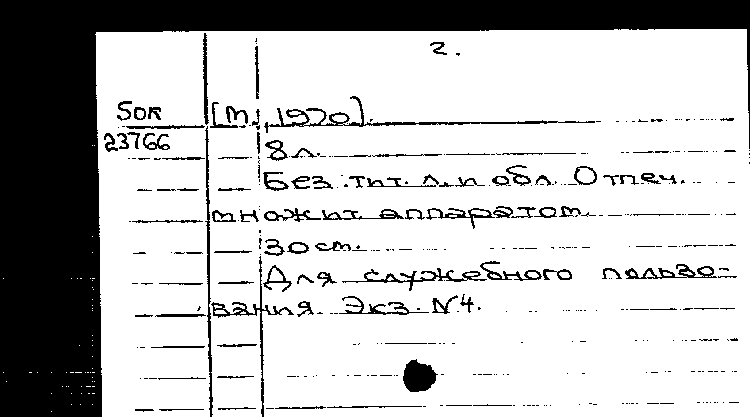 2.
50R [М., 1970].
23766
8 л.
Без тит. л. и обл. Отпеч.
множит. аппаратом.
30 cm.
Для служебного пользо-
вания. Экз. N4.